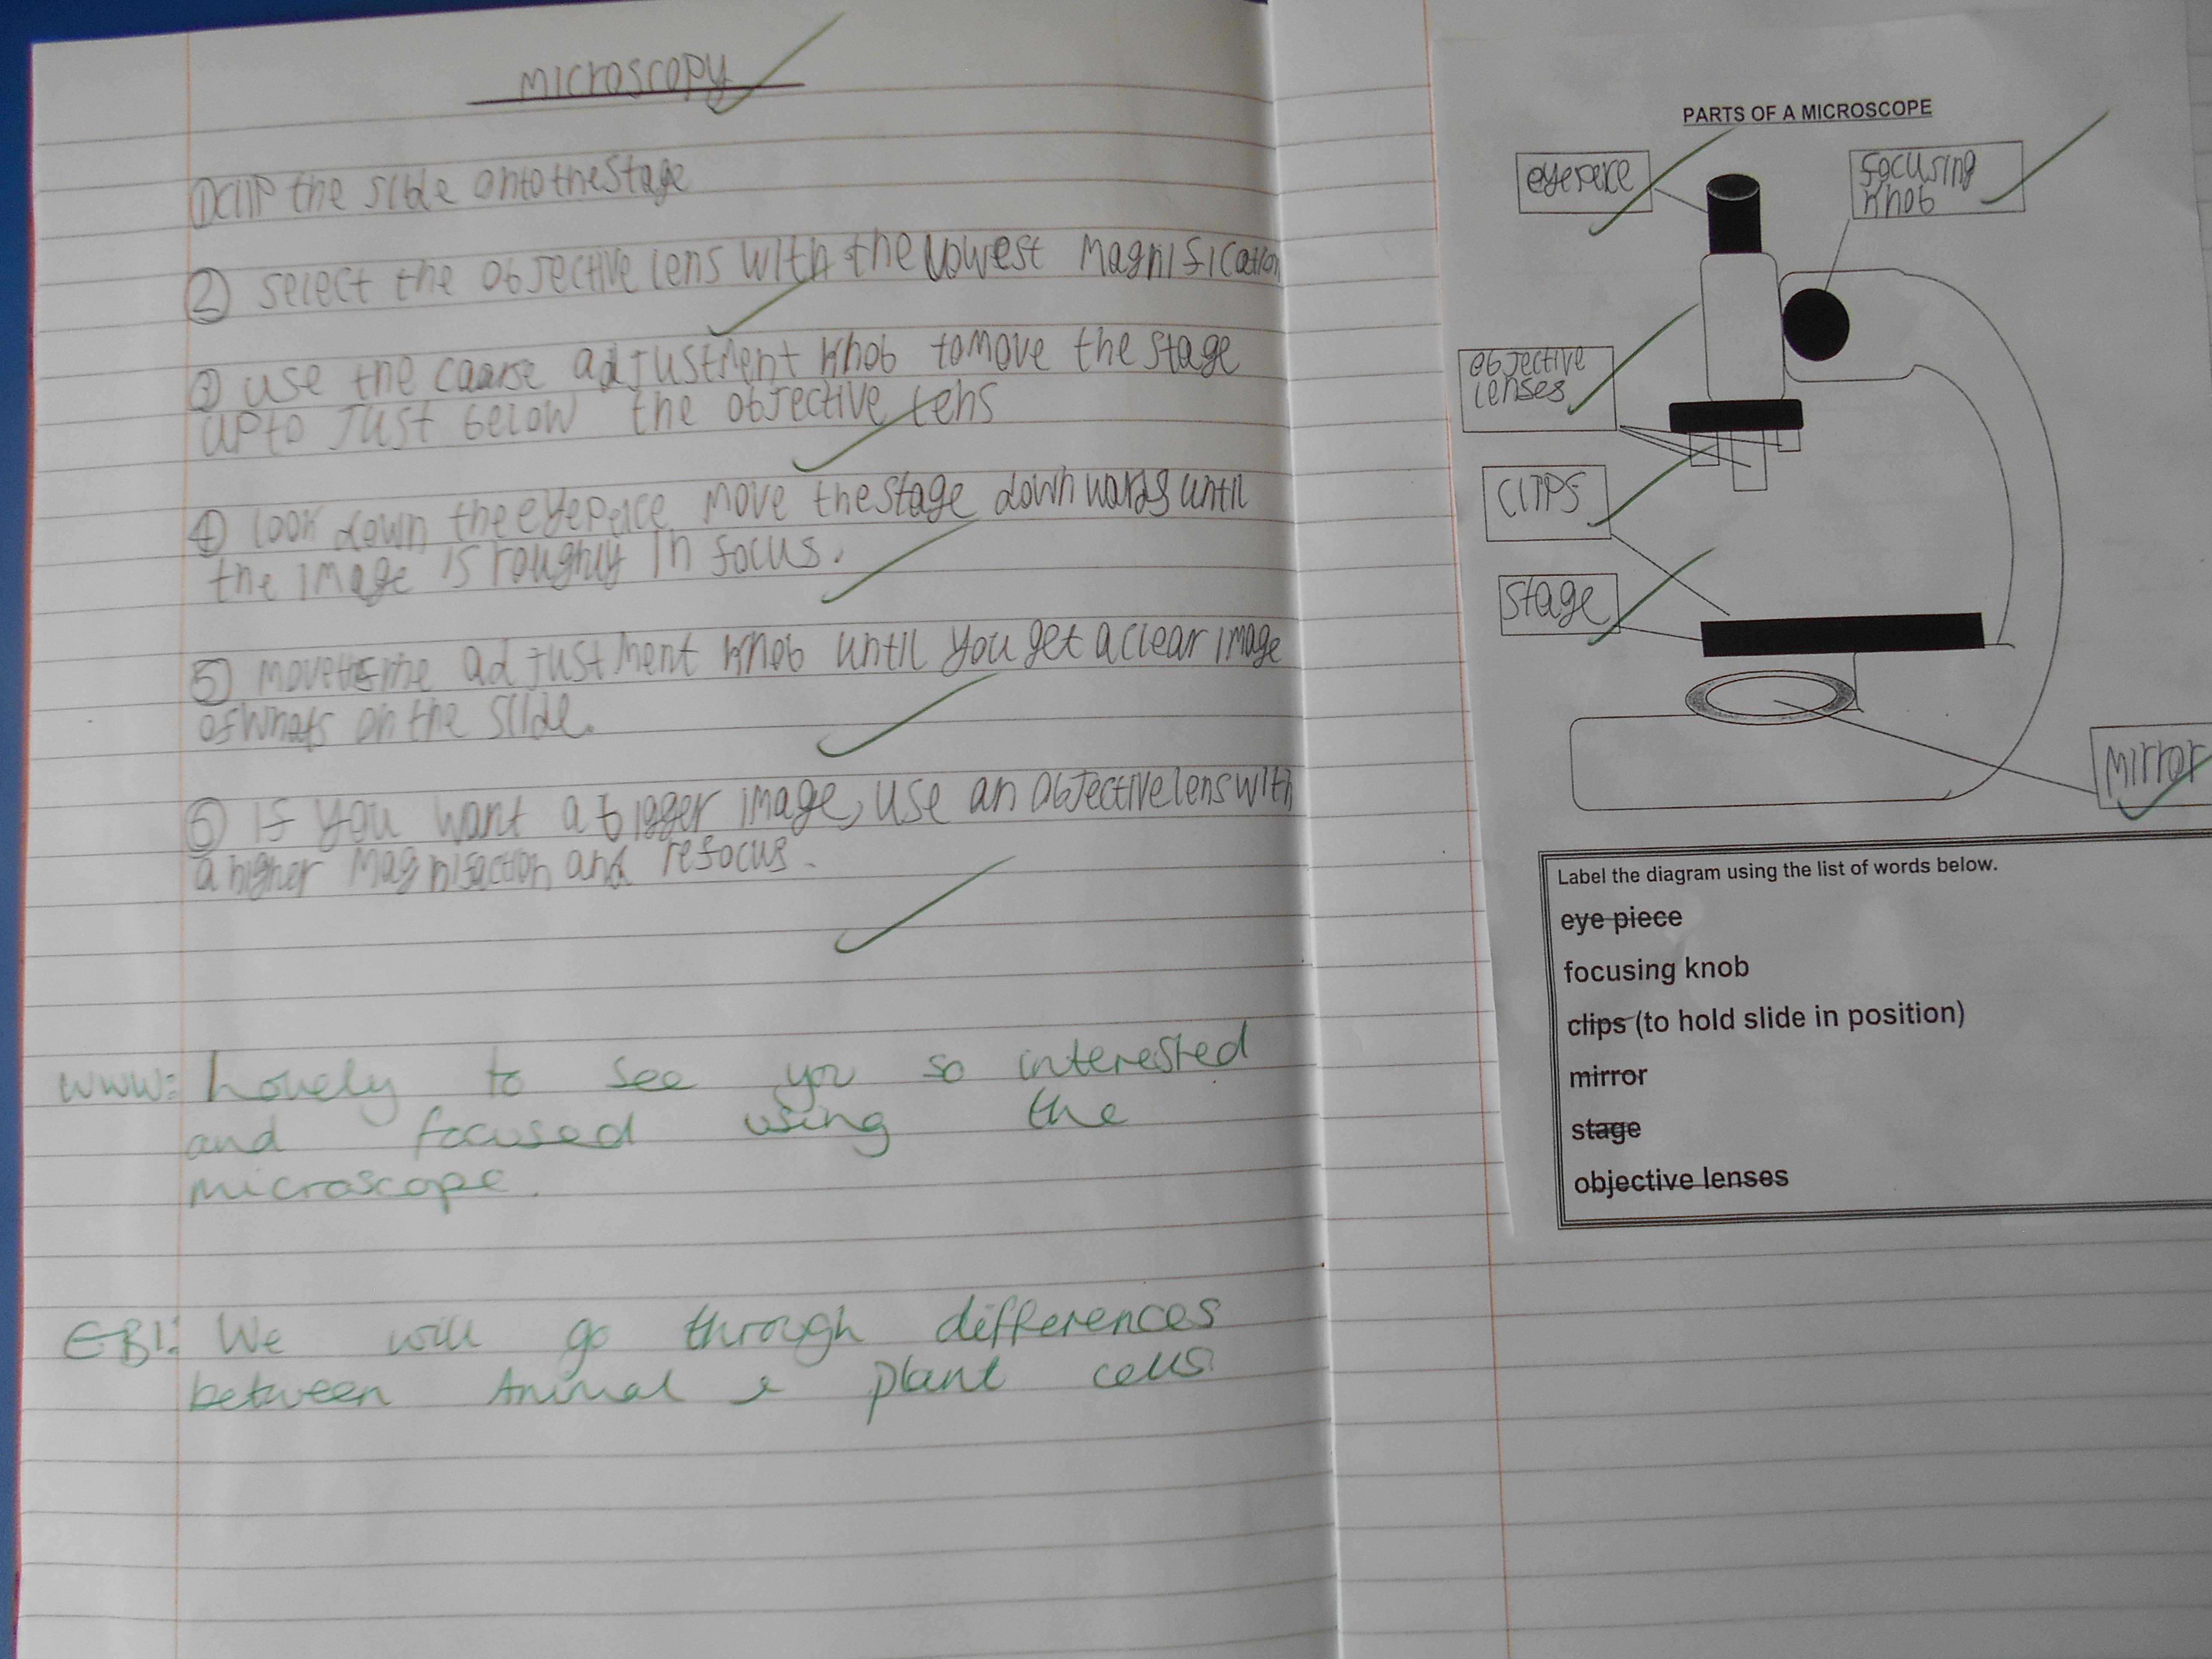 microscopy
① clip the slide onto the stage
② select the objective lens with the lowest magnification
③ use the coarse adjustment knob to move the stage
up to just below the objective lens
④ look down the eyepeice move the stage downwards until
the image is roughly in focus.
⑤ move the fine adjustment knob until you get a clear image
of whats on the slide.
⑥ if you want a bigger image, use an objective lens with
a higher magnifaction and refocus.
WWW: Lovely to see you so interested
and focused using the
microscope.
EBI: We will go through differences
between Animal & plant cells.
PARTS OF A MICROSCOPE
eyepeice
focusing
knob
objective
lenses
clips
stage
mirror
Label the diagram using the list of words below.
eye piece
focusing knob
clips (to hold slide in position)
mirror
stage
objective lenses